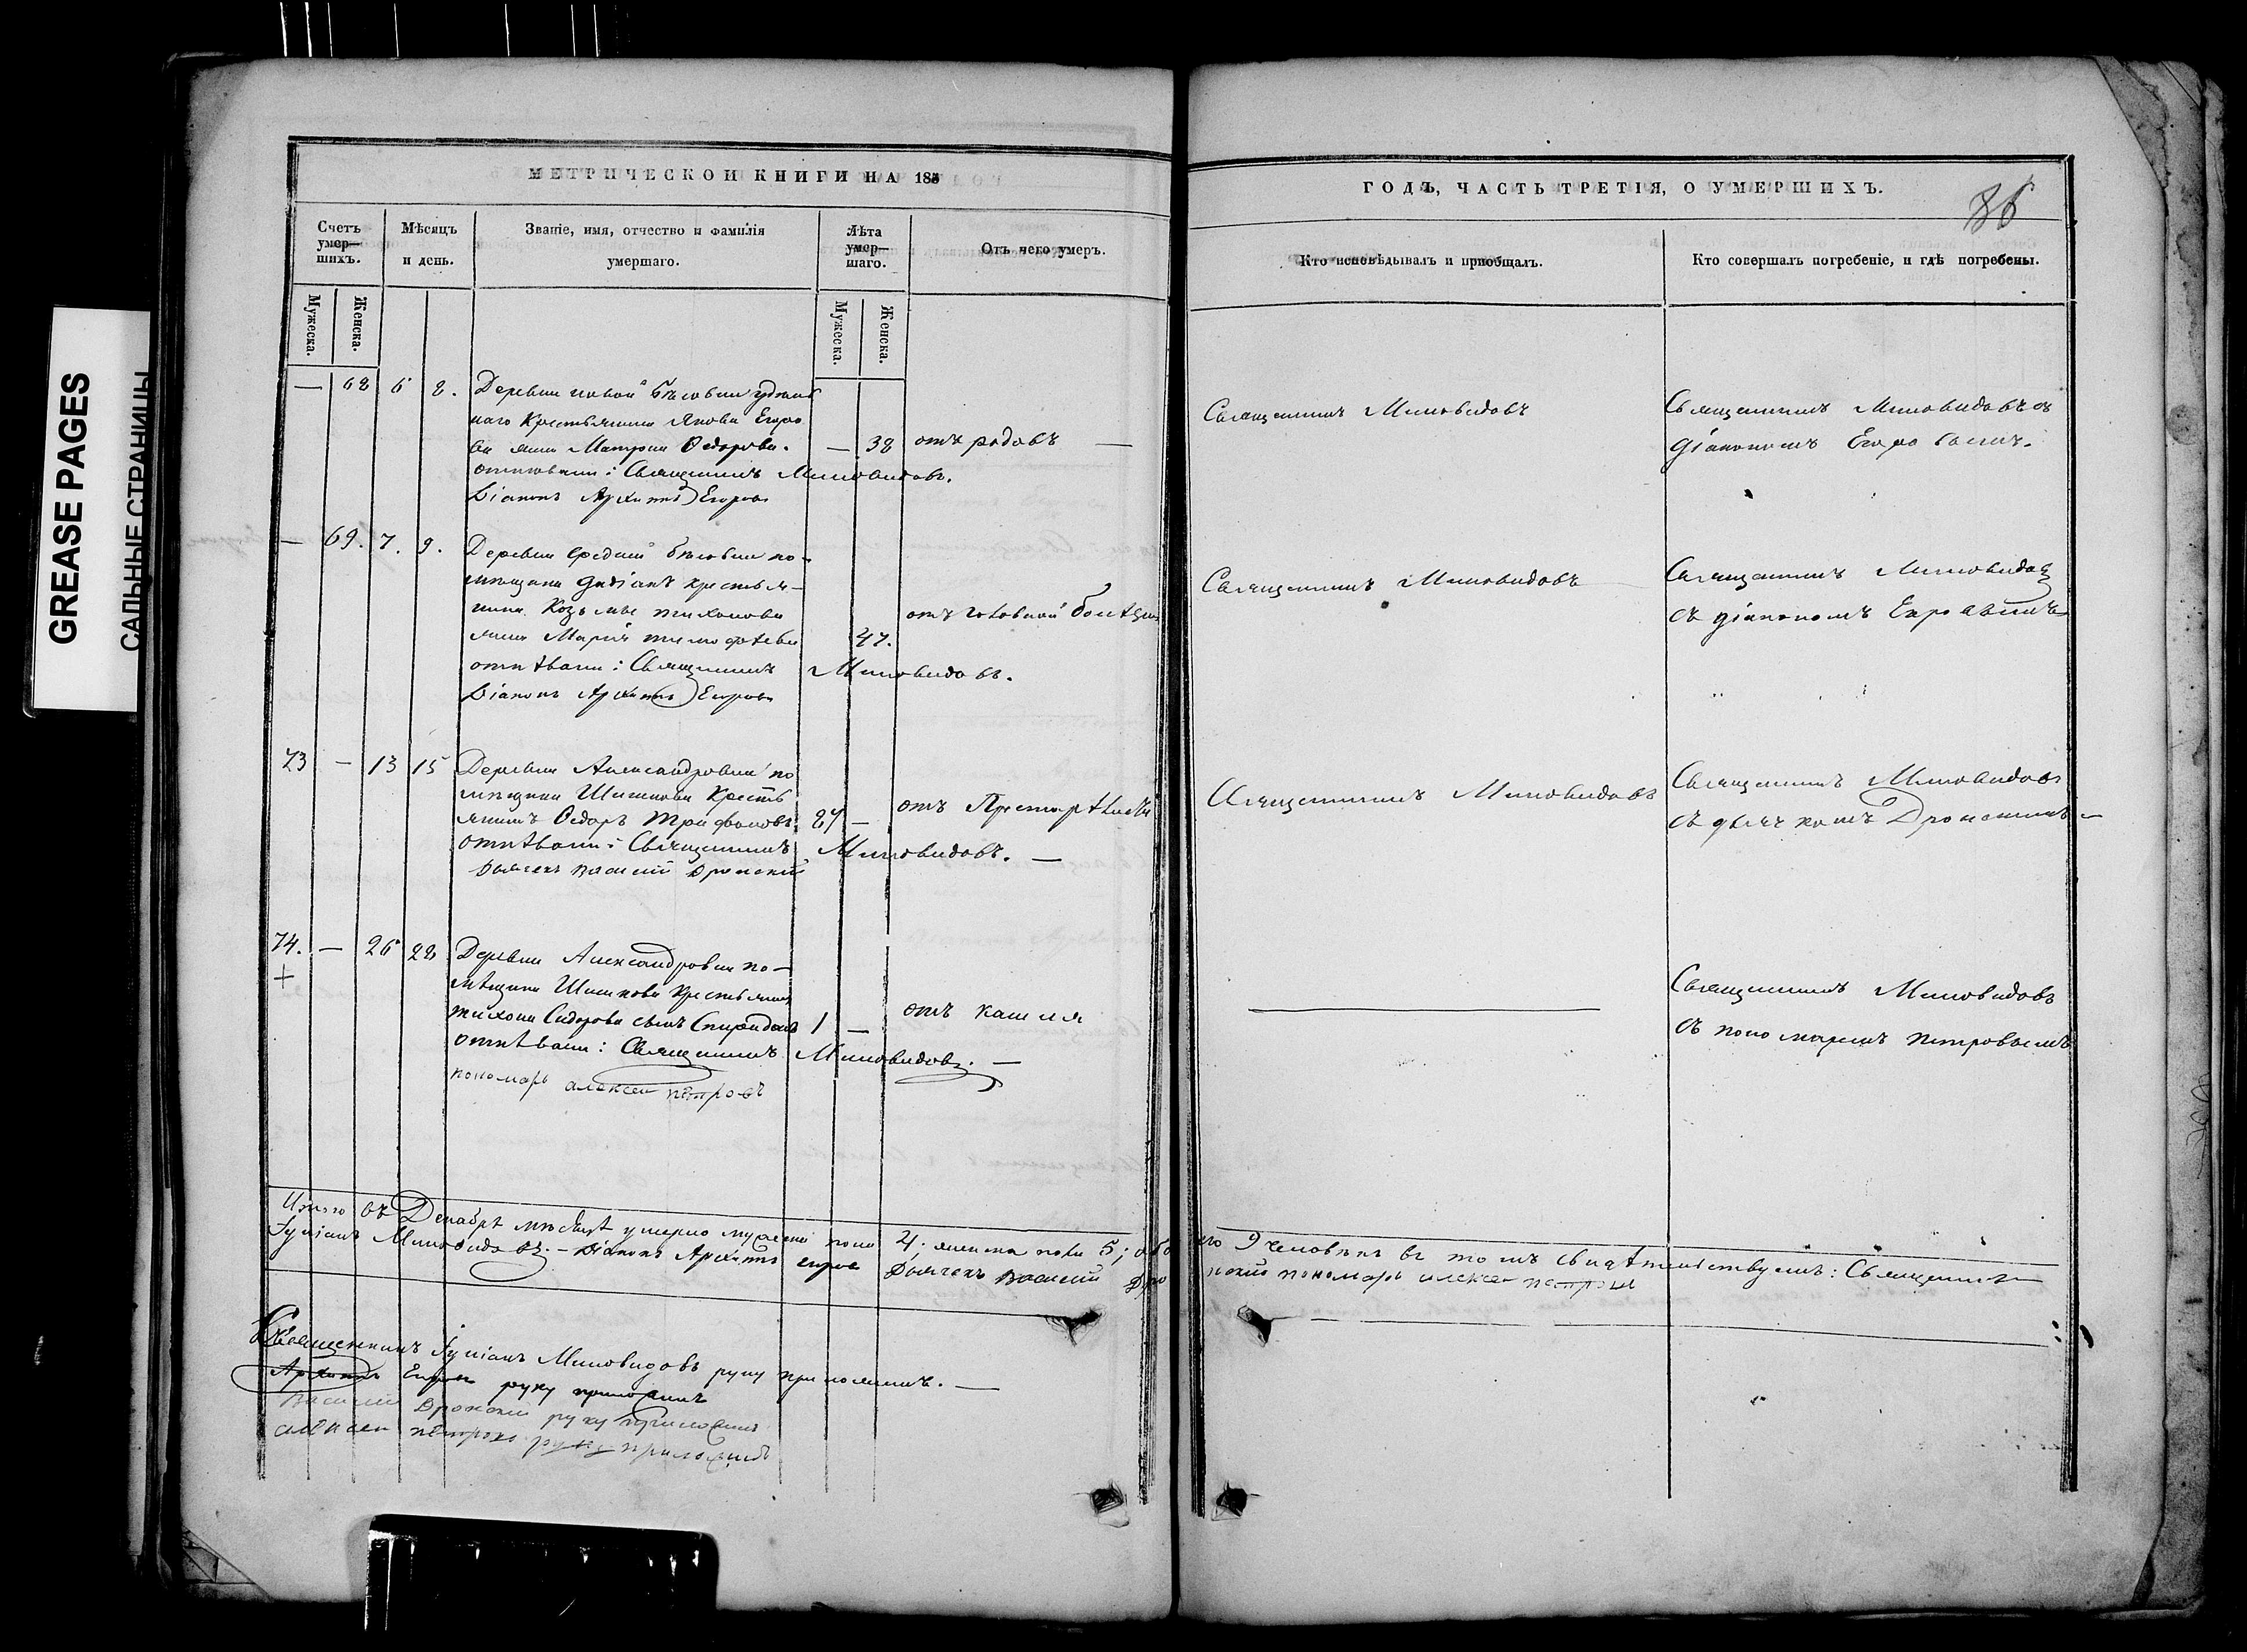 GREASE PAGES
САЛЬНЫЕ СТРАНИЦЫ
МЕТРИЧЕСКОЙ КНИГИ НА 185
Счетъ умер—шихъ.
Мѣсяцъ и день.
Званіе, имя, отчество и фамилія умершаго.
Лѣта умер—шаго.
Отъ чего умеръ.
Мужеска.
Женска.
Мужеска.
Женска.
— 68 6 8. Деревни новой
наго крестьянина Якова Егоро
ва жена Матрона Ѳедорова. — 38 отъ родовъ —
отпѣвали: Священникъ Миловидовъ.
Діаконъ Архиппъ Егоровъ
— 69. 7. 9. Деревни средней по-
мѣщика крестья-
нина Козьмы Тихонова отъ головной болѣзни
жена Марія Тимофѣева 47.
отпѣвали: Священникъ Миловидовъ.
Діаконъ Архиппъ Егоровъ
73 — 13 15 Деревни Александровки по
мѣщика Шишкова кресть
янинъ Ѳедоръ Трифоновъ 87 — отъ Престарѣлости
отпѣвали: Священникъ Миловидовъ. —
Дьячекъ Василий Дронский
74. — 26 28 Деревни Александровки по—
+
мѣщика Шишкова крестьянина
Тихона Сидорова сынъ Спиридонъ 1 — отъ кашля
отпѣвали: Священникъ Миловидовъ. —
пономарь алексей петровъ
Итого въ Декабрѣ мѣсяцѣ умерло мужеска пола 4; женска пола 5; обо
Іуліанъ Миловидовъ. – Діаконъ Архиппъ Егоров Дьячекъ Василий Дро
Священникъ Іуліанъ Миловидовъ руку приложилъ. —
Архиппъ Егоров руку приложилъ
Василий Дронский руку приложилъ
алексей петровъ руку приложилъ
ГОДЪ, ЧАСТЬ ТРЕТІЯ, О УМЕРШИХЪ.
86
Кто исповѣдывалъ и приобщалъ.
Кто совершалъ погребеніе, и гдѣ погребены.
Священникъ Миловидовъ
Священникъ Миловидовъ съ
діакономъ Егоровымъ.
Священникъ Миловидовъ
Священникъ Миловидовъ
съ діакономъ Егоровымъ
Священникъ Миловидовъ
Священникъ Миловидовъ
съ дьячкомъ Дронскимъ —
Священникъ Миловидовъ
съ пономаремъ Петровымъ
его 9 человѣкъ въ томъ свидѣтельствуемъ: Священникъ
нский пономарь алексей петровъ